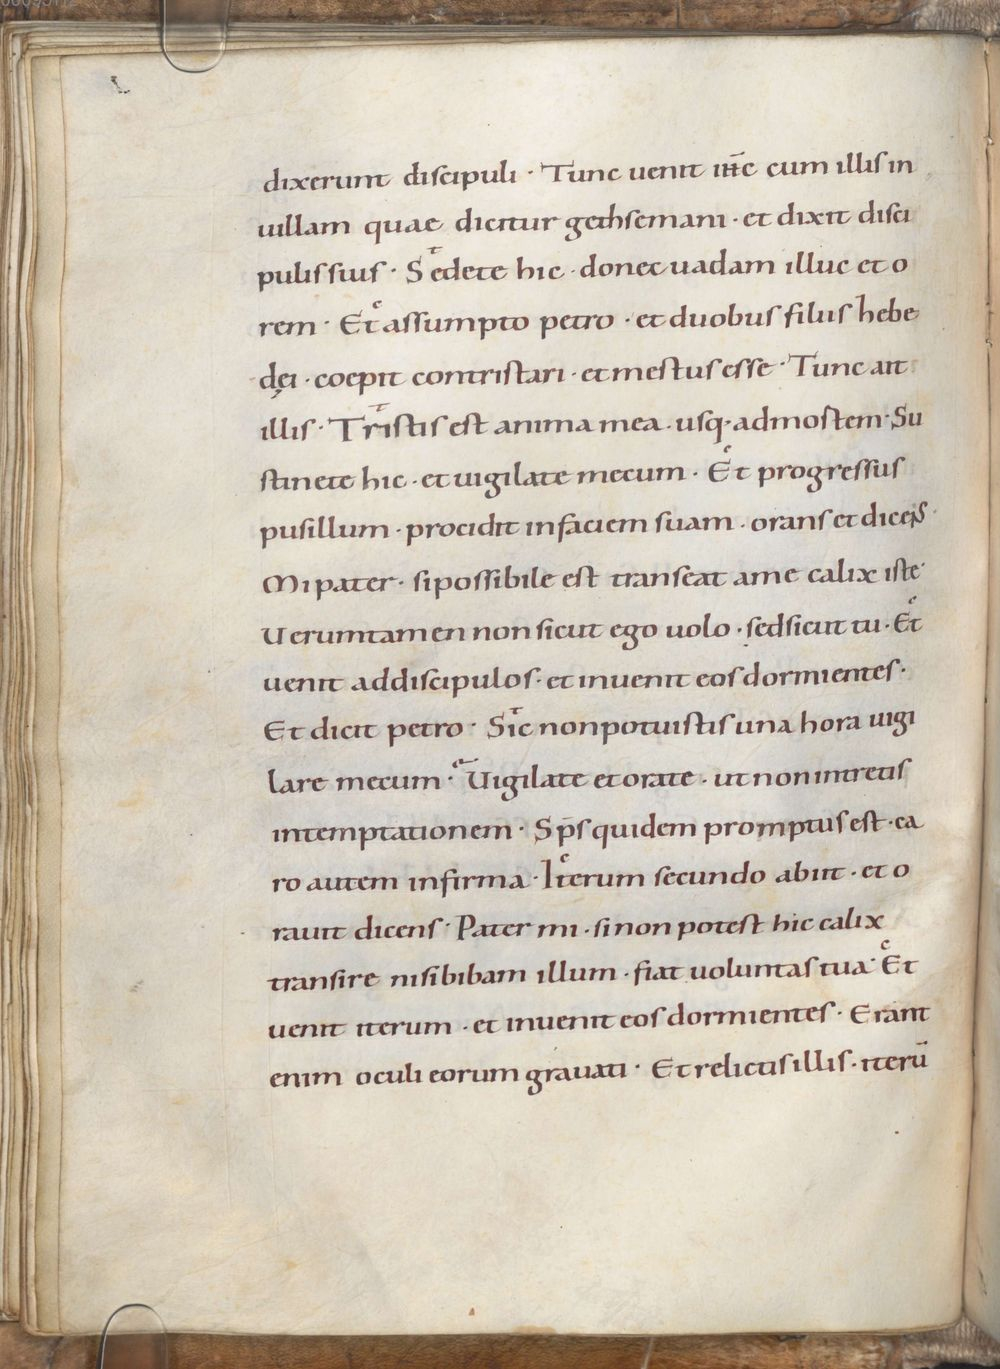 dixerunt discipuli · Tunc uenit ihc cum illis in
uillam quae dicitur gethsemani · et dixit disci
pulis suis · Sedete hic · donec uadam illuc et o
rem · Et assumpto petro · et duobus filiis hebe
dei · coepit contristari · et mestus esse · Tunc ait
illis · Tristis est anima mea · usq· ad mortem · Su
stinete hic · et uigilate mecum · Et progressus
pusillum · procidit in faciem suam · orans et dicens ·
Mi pater · si possibile est transeat a me calix iste ·
Uerumtamen non sicut ego uolo · sed sicut tu · Et
uenit ad discipulos · et inuenit eos dormientes ·
Et dicit petro · Sic non potuistis una hora uigi
lare mecum · Uigilate et orate · ut non intretis
in temptationem · Sps̄ quidem promptus est · ca
ro autem infirma · Iterum secundo abiit · et o
rauit dicens · Pater mi · si non potest hic calix
transire nisi bibam illum · fiat uoluntas tua · Et
uenit iterum · et inuenit eos dormientes · Erant
enim oculi eorum grauati · Et relictis illis · iterū